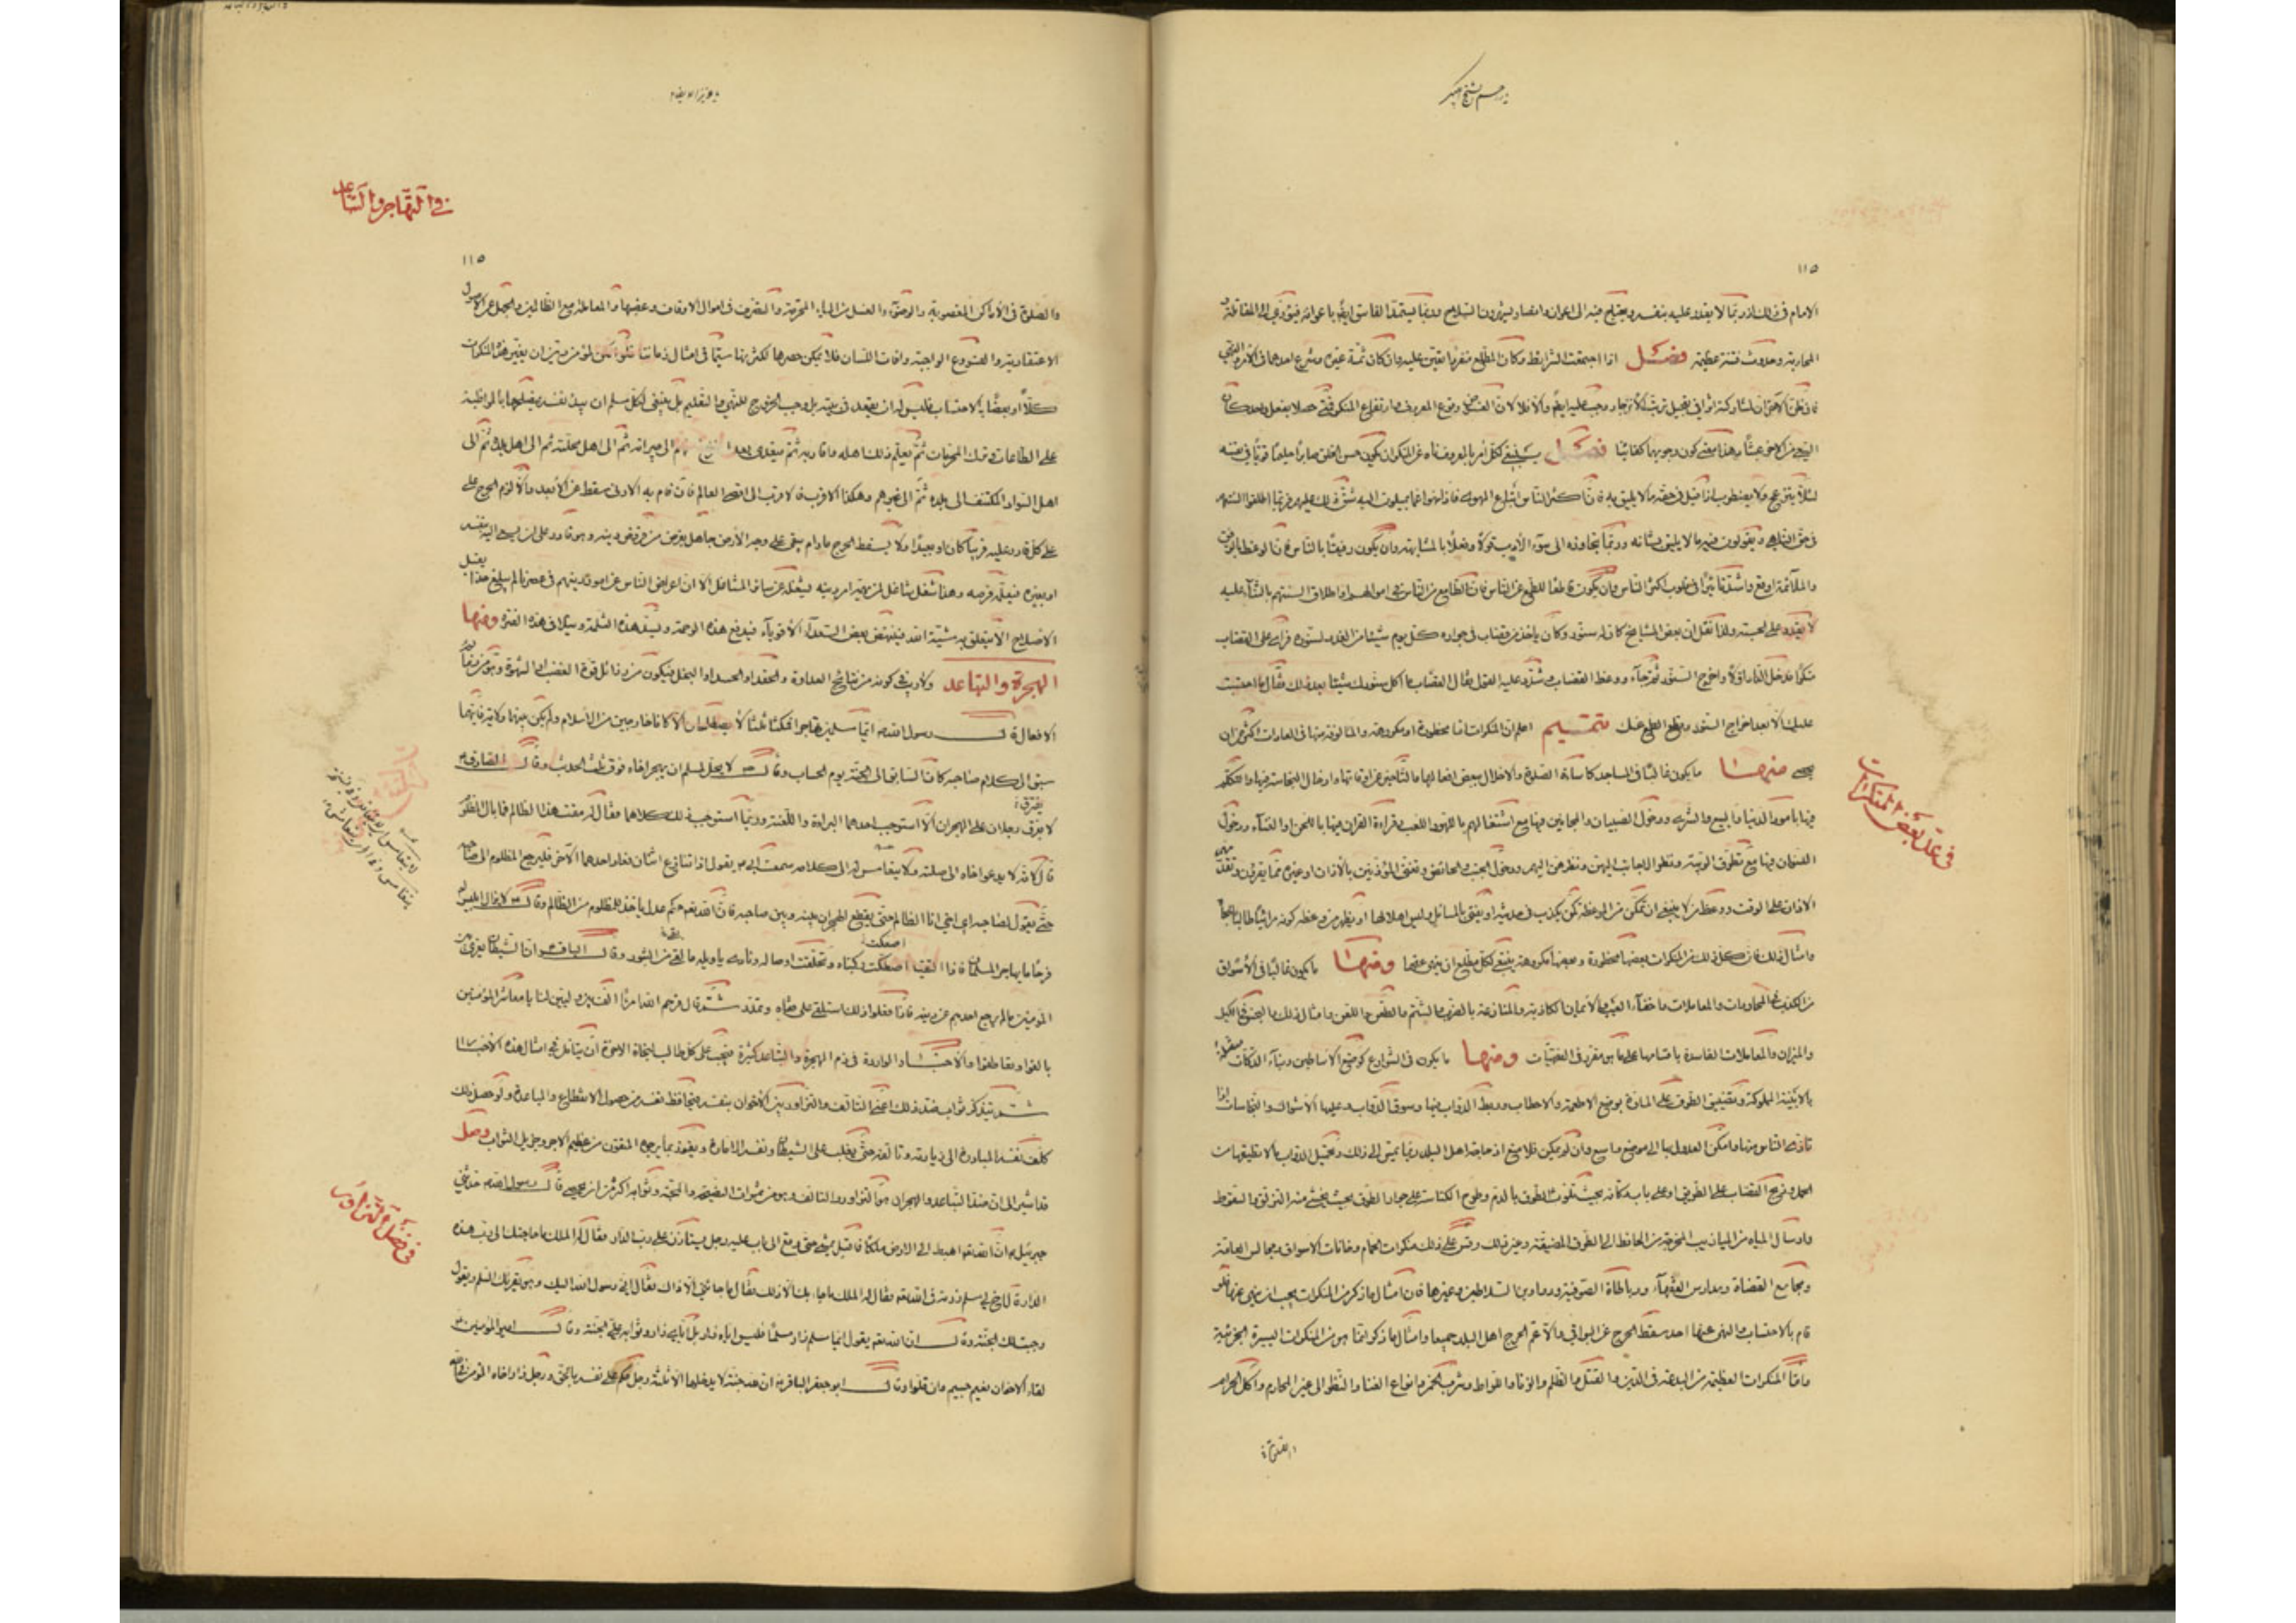 في عدّ بعض المنكرات
١١٥
الامام في ذلك اذ ربّما لا يقدر عليه بنفسه ويحتاج فيه الى اعوان وانصار يشهرون السلاح وربّما يستمدّ الفاسق ايضًا باعوانه فيؤدّي الى المقاتلة و
المحاربة وحدوث فتنة عظيمة فصل اذا اجتمعت الشرايط وكان المطّلع منفردًا تعيّن عليه وان كان ثمّة غيره وشرع احدهما في الامر والنهي
فان ظنّ الآخر ان لمشاركته اثرًا في تعجيل ترتّب الانزجار وجب عليه ايضًا والّا فلا لانّ الغرض وقوع المعروف وارتفاع المنكر فمتى حصلا بفعل واحد كان
السعي من الآخر عبثًا وهذا معنى كون وجوبها كفائيًا فصل ينبغي لكلّ آمر بالمعروف ناه عن المنكر ان يكون حسن الخلق صابرًا حليمًا قويًّا في نفسه
لئلّا ينزعج ولا يضطرب اذا قيل في حقّه ما لا يليق به فانّ اكثر الناس اتباع الهوى فاذا نهوا عمّا يميلون اليه شقّ ذلك عليهم فربّما اطلقوا السنتهم
في حقّ الناهي ويقولون فيه ما لا يليق بشانه وربّما يتجاوز الى سوء الأدب قولًا وفعلًا بالمشافهة وان يكون رفيقًا بالناس فانّ الوعظ بالرفق
والملائمة اوقع واشدّ تأثيرًا في قلوب اكثر الناس وان يكون قاطعًا للطمع عن الناس فانّ الطامع من الناس في اموالهم او اطلاق السنتهم بالثناء عليه
لا يقدر على الحسبة ولذا نقل انّ بعض المشايخ كان له سنّور وكان ياخذ من قصّاب في جواره كلّ يوم شيئًا من الغدد لسنّوره فراى على القصّاب
منكرًا فدخل الدار اوّلًا واخرج السنّور ثمّ جاء ووعظ القصّاب وشدّد عليه القول فقال القصّاب لا اكل سنّورك شيئًا بعد ذلك فقال ما احتسبت
عليك الّا بعد اخراج السنّور وقطع الطمع عنك تتميم اعلم انّ المنكرات امّا محظورة او مكروهة والمالوفة منها في العادات اكثر من ان
تحصى منها ما يكون غالبًا في المساجد كاساءة الصلوة والاخلال ببعض افعالها والتاخير عن اوقاتها وادخال النجاسة فيها والتكلّم
فيها بامور الدنيا والبيع والشرى ودخول الصبيان والمجانين فيها مع اشتغالهم باللهو واللعب وقراءة القرآن فيها باللحن او الغناء ودخول
النسوان فيها مع تطرّق الريبة ونظر الاجانب اليهنّ ونظرهنّ اليهم ودخول الجنب والحائض وتغنّي المؤذنين بالأذان او غيره ممّا يقرؤن وتقدّم
الاذان على الوقت ووعظ من لا ينبغي ان يمكّن من الوعظ كمن يكذب في حديثه او يفتي بالمسائل وليس اهلًا لها او يظهر من وعظه كونه مرائيًا طالبًا للجاه
وامثال ذلك فان كلّ ذلك من المنكرات بعضها محظورة وبعضها مكروهة ينبغي لكلّ مطّلع ان ينهى عنها ومنها ما يكون غالبًا في الأسواق
من الكذب في المحاورات والمعاملات واخفاء العيب والأيمان الكاذبة والمنازعة بالضرب والشتم والطعن واللعن وامثال ذلك والبخس في الكيل
والميزان والمعاملات الفاسدة باقسامها على ما هو مقرّر في الفقهيّات ومنها ما يكون في الشوارع كوضع الاساطين وبناء الدكّات متّصلة
بالابنية المملوكة وتضييق الطرق على المارّة بوضع الاطعمة والاحطاب وربط الدوابّ فيها وسوق الدوابّ وعليها الاشواك والنجاسات اذا
تأذّى الناس منها وامكن العدول بها الى موضع واسع وان لم يمكن فلا منع اذ حاجة اهل البلد ربّما تمسّ الى ذلك وتحميل الدوابّ ما لا تطيقها من
الحمل وذبح القصّاب على الطريق او على باب دكّانه بحيث تلوّث الطرق بالدم وطرح الكناسة على جوادّ الطرق بحيث يخشى منه التزلّق والسقوط
وارسال المياه من الميازيب المخرجة من الحائط الى الطرق الضيّقة وغير ذلك وقس على ذلك منكرات الحمّام وخانات الاسواق ومجالس العامّة
ومجامع القضاة ومدارس الفقهاء ورباطات الصوفيّة ودواوين السلاطين وغيرها فان امثال ما ذكر من المنكرات يجب ان ينهى عنها فلو
قام بالاحتساب والنهي عنها احد سقط الحرج عن البواقي والّا عمّ الحرج اهل البلد جميعا وامثال ما ذكر انّما هو من المنكرات اليسيرة الجزئية
وامّا المنكرات العظيمة من البدعة في الدين والقتل والظلم والزنا واللواط وشرب الخمر وانواع الغنا والنظر الى غير المحارم واكل الحرام
والصّلوة
في التهاجر والتباعد
١١٥
والصلوة في الأماكن المغصوبة والوضوء والغسل من المياه المحرّمة والتصرّف في اموال الاوقاف وغصبها والمعاملة مع الظالمين والجهل عن الاصول
الاعتقادية والفروع الواجبة وافات اللسان فلا يمكن حصرها لكثرتها سيّما في امثال زماننا فلو امكن لمؤمن دين ان يغيّر هذه المنكرات
كلًّا او بعضًا بالاحتساب فليس له ان يقعد في بيته بل وجب الخروج للنهي والتعليم بل ينبغي لكل مسلم ان يبدأ بنفسه فيصلحها بالمواظبة
على الطاعات وترك المحرمات ثمّ تعليم ذلك اهله واقاربه ثمّ يتعدّى بعد الفراغ منهم الى جيرانه ثمّ الى اهل محلّته ثم الى اهل بلده ثمّ الى
اهل السواد المكتنف الى بلده ثمّ الى غيرهم وهكذا الاقرب فالاقرب الى اقصى العالم فان قام به الادنى سقط عن الأبعد والّا لزم الحرج على
على كلّ قادر عليه قريبًا كان او بعيدًا ولا يسقط الحرج مادام يبقى على وجه الأرض جاهل بفرض من فروض دينه وهو قادر على ان يسعى اليه بنفسه
او بغيره فيعلّم فرضه وهذا شغل شاغل لمن يهمّه امر دينه يشغله عن سائر المشاغل الّا انّ اعراض الناس عن امور دينهم في عصرنا لم يبلغ حدًّا يقبل
الاصلاح الّا يتعلّق به مشيّة الله فينتهض بعض السعداء الأقوياء فيدفع هذه الوصمة ويسدّ هذه الثلمة ويتلافى هذه الفترة ومنها
الهجرة والتباعد ولا ريب في كونه من نتائج العداوة والحقد او الحسد او البخل فيكون من رذائل قوة الغضب او الشهوة وهو من ذمائم
الافعال قال رسول الله ص ايّما مسلمين تهاجرا فمكثا ثلثًا لا يصطلحان الّا كانا خارجين من الاسلام ولم يكن بينهما ولاية فايّهما
سبق الى كلام صاحبه كان السابق الى الجنّة يوم الحساب وقال ص لا يحلّ لمسلم ان يهجر اخاه فوق ثلث الحديث وقال الصادق ع
لا يفترق رجلان على الهجران الّا استوجب احدهما البراءة واللعنة وربّما استوجب ذلك كلاهما فقال له معتّب هذا الظالم فما بال المظلوم
قال لانّه لا يدعو اخاه الى صلته ولا يتعامس له الى كلامه سمعت ابي ع يقول اذا تنازع اثنان فعازّ احدهما الآخر فليرجع المظلوم الى صاحبه
حتّى يقول لصاحبه اي اخي انا الظالم حتى يقطع الهجران بينه وبين صاحبه فانّ الله تعم حكم عدل ياخذ للمظلوم من الظالم وقال ع لا يزال ابليس
فرحًا ما يهاجر المسلمان فاذا التقيا اصطكّت ركبتاه وتخلّعت اوصاله ونادى يا ويله ما لقي من الثبور وقال الباقر ع انّ الشيطان يغري بين
المؤمنين ما لم يرجع احدهم عن دينه فاذا فعلوا ذلك استلقى على قفاه وتمدّد ثم قال فرحم الله امرءًا الّف بين وليّين لنا يا معاشر المؤمنين
تالفوا وتعاطفوا والأخبار الواردة في ذم الهجرة والتباعد كثيرة فيجب على كلّ طالب لنجاة الآخرة ان يتأمّل في امثال هذه الأخبار
ثم يتذكّر ثواب ضدّ ذلك اعني التالف والتزاور بين الاخوان بنفسه فيحافظ نفسه من حصول الانقطاع والمباعدة ولو حصل ذلك
كلّف نفسه المبادرة الى زيارته وتالفه حتّى يغلب على الشيطان ونفسه الامارة ويفوز بما يرجوه المتّقون من عظيم الاجر وجزيل الثواب وصل
قد اشير الى ان ضدّ التباعد والهجران هو التزاور والتالف وهو من ثمرات النصيحة والمحبّة وثوابه اكثر من ان يحصى قال رسول الله ص حدّثني
جبرئيل ع انّ الله تعم اهبط الى الارض ملكًا فاقبل يمشي حتى وقع الى باب عليه رجل يستأذن على ربّ الدار فقال له الملك ما حاجتك الى ربّ هذه
الدار قال اخ لي مسلم زرته في الله تعم فقال له الملك ما جاء بك الّا ذلك فقال ما جائني الّا ذاك فقال انّي رسول الله اليك وهو يقرئك السلم ويقول
وجبت لك الجنّة وقال انّ الله تعم يقول ايّما مسلم زار مسلمًا فليس ايّاه زار بل ايّاي زار وثوابه عليّ الجنّة وقال امير المؤمنين ع
لقاء الاخوان مغنم جسيم وان قلّوا وقال ابو جعفر الباقر ع ان لله جنّة لا يدخلها الّا ثلثة رجل حكم على نفسه بالحق ورجل زار اخاه المؤمن في الله
في فضل التزاور